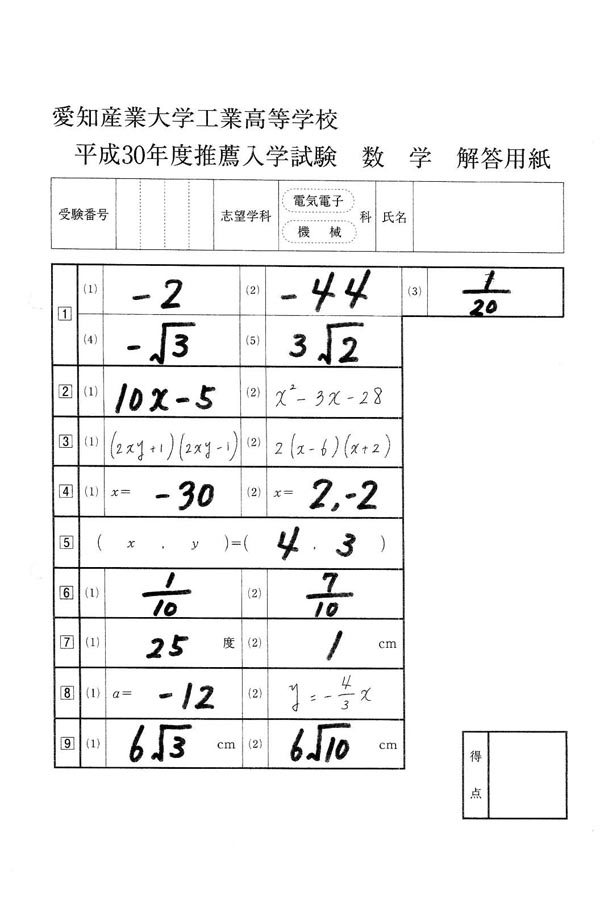 愛知産業大学工業高等学校
平成30年度推薦入学試験 数 学 解答用紙
受験番号 志望学科 電気電子 機 械 科 氏名
1 (1) -2 (2) -44 (3) 1/20
(4) -√3 (5) 3√2
2 (1) 10x-5 (2) x²-3x-28
3 (1) (2xy+1)(2xy-1) (2) 2(x-6)(x+2)
4 (1) x= -30 (2) x= 2,-2
5 ( x , y )=( 4 , 3 )
6 (1) 1/10 (2) 7/10
7 (1) 25 度 (2) 1 cm
8 (1) a= -12 (2) y=-4/3x
9 (1) 6√3 cm (2) 6√10 cm
得点